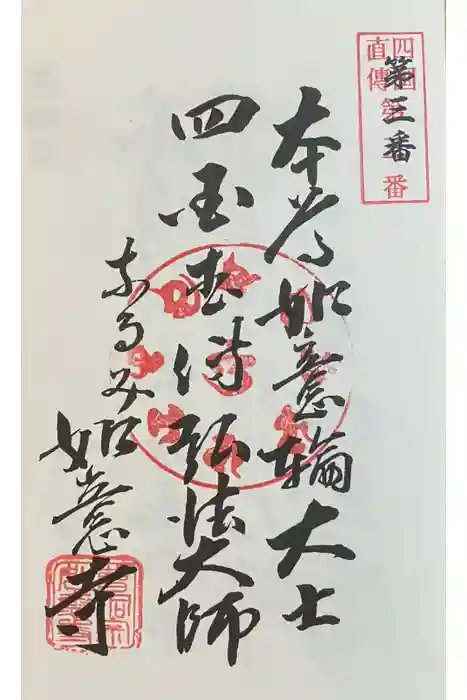 四國
直傳
第番
第三番
本尊如意輪大士
四国直伝弘法大師
なるみ如意寺